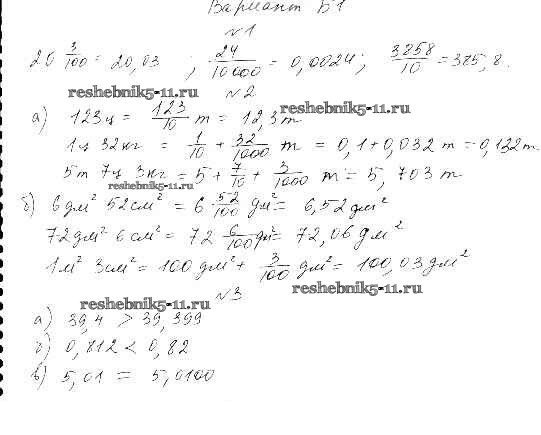 Вариант Б1
№1
20 3/100 = 20,03 ; 24/10000 = 0,0024; 3858/10 = 385,8.
reshebnik5-11.ru
№2
reshebnik5-11.ru
а) 123ц = 123/10 т = 12,3т
1ц 32кг = 1/10 + 32/1000 т = 0,1+0,032 т = 0,132т.
5т 7ц 3кг = 5 + 7/10 + 3/1000 т = 5,703 т
reshebnik5-11.ru
б) 6дм² 52см² = 6 52/100 дм² = 6,52дм²
72дм² 6см² = 72 6/100 дм² = 72,06дм²
1м² 3см² = 100дм² + 3/100 дм² = 100,03дм²
reshebnik5-11.ru
reshebnik5-11.ru
№3
а) 39,4 > 39,399
б) 0,812 < 0,82
в) 5,01 = 5,0100